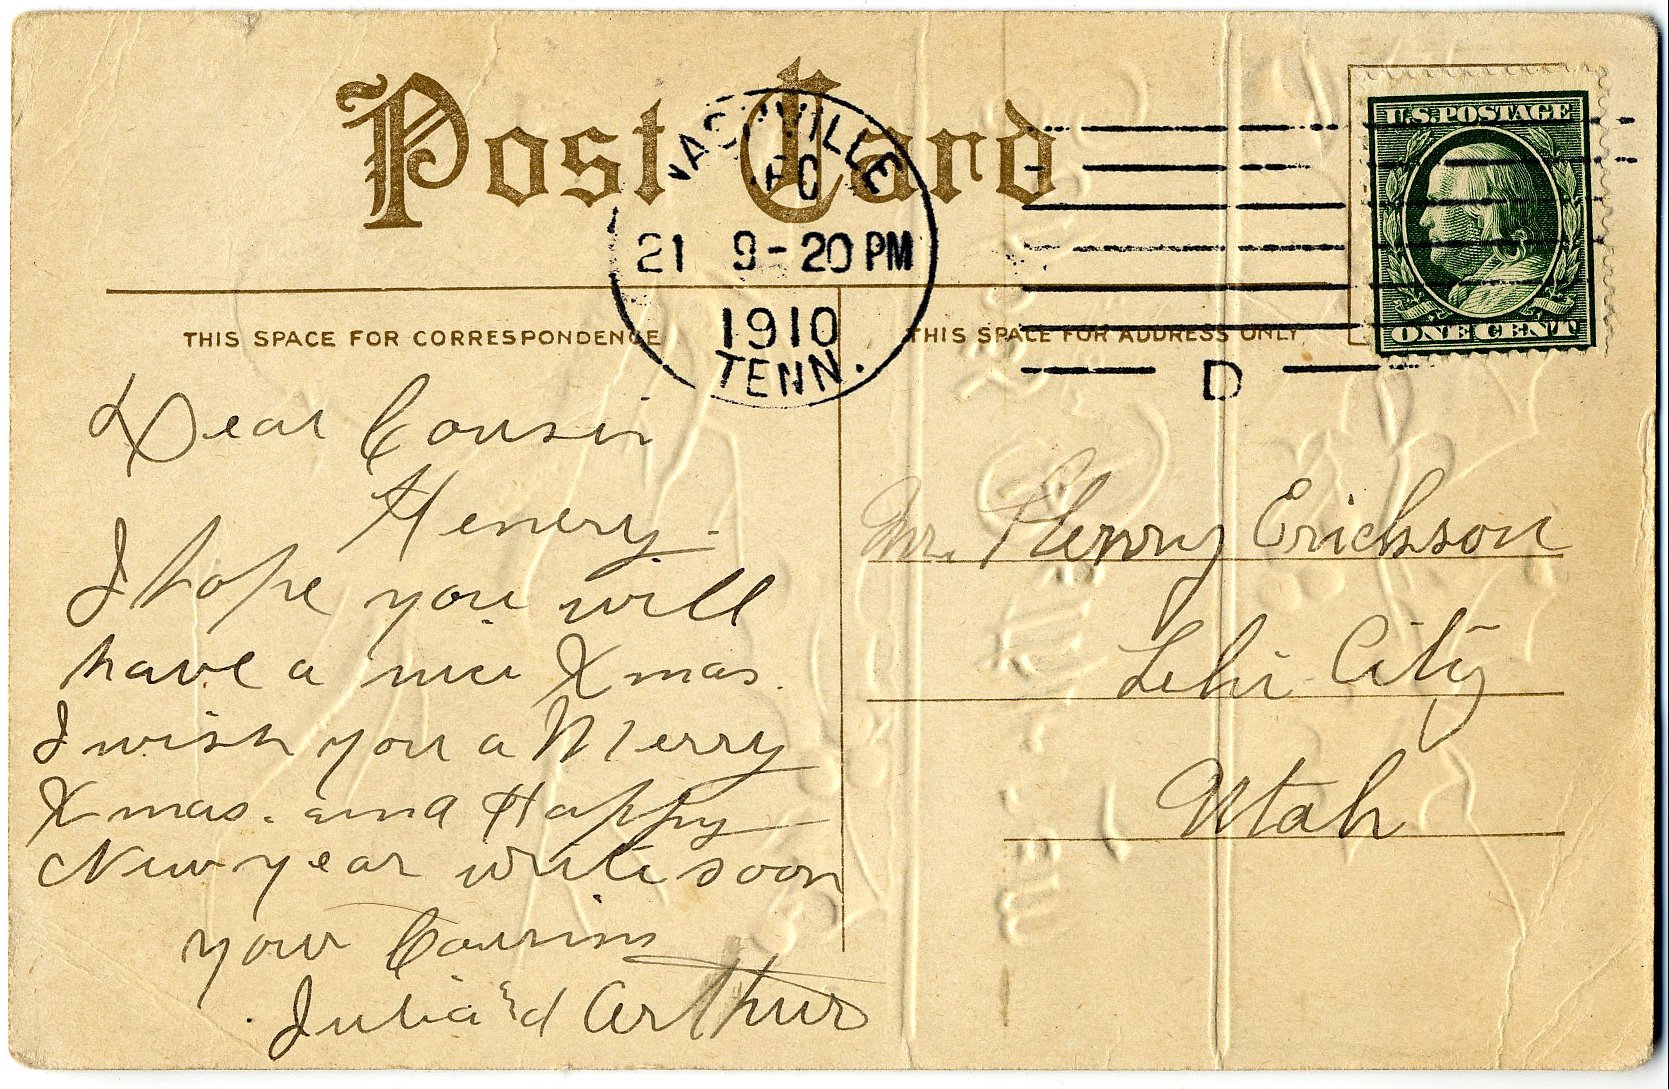 Post Card
NASHVILLE
21 9-20 PM
1910
TENN.
D
U.S. POSTAGE
ONE CENT
THIS SPACE FOR CORRESPONDENCE
THIS SPACE FOR ADDRESS ONLY
Dear Cousin
Henery.
I hope you will
have a nice Xmas.
I wish you a Merry
Xmas. and Happy
New year write soon
your Cousins
Julia & Arthur
Mr. Henry Erickson
Lehi City
Utah